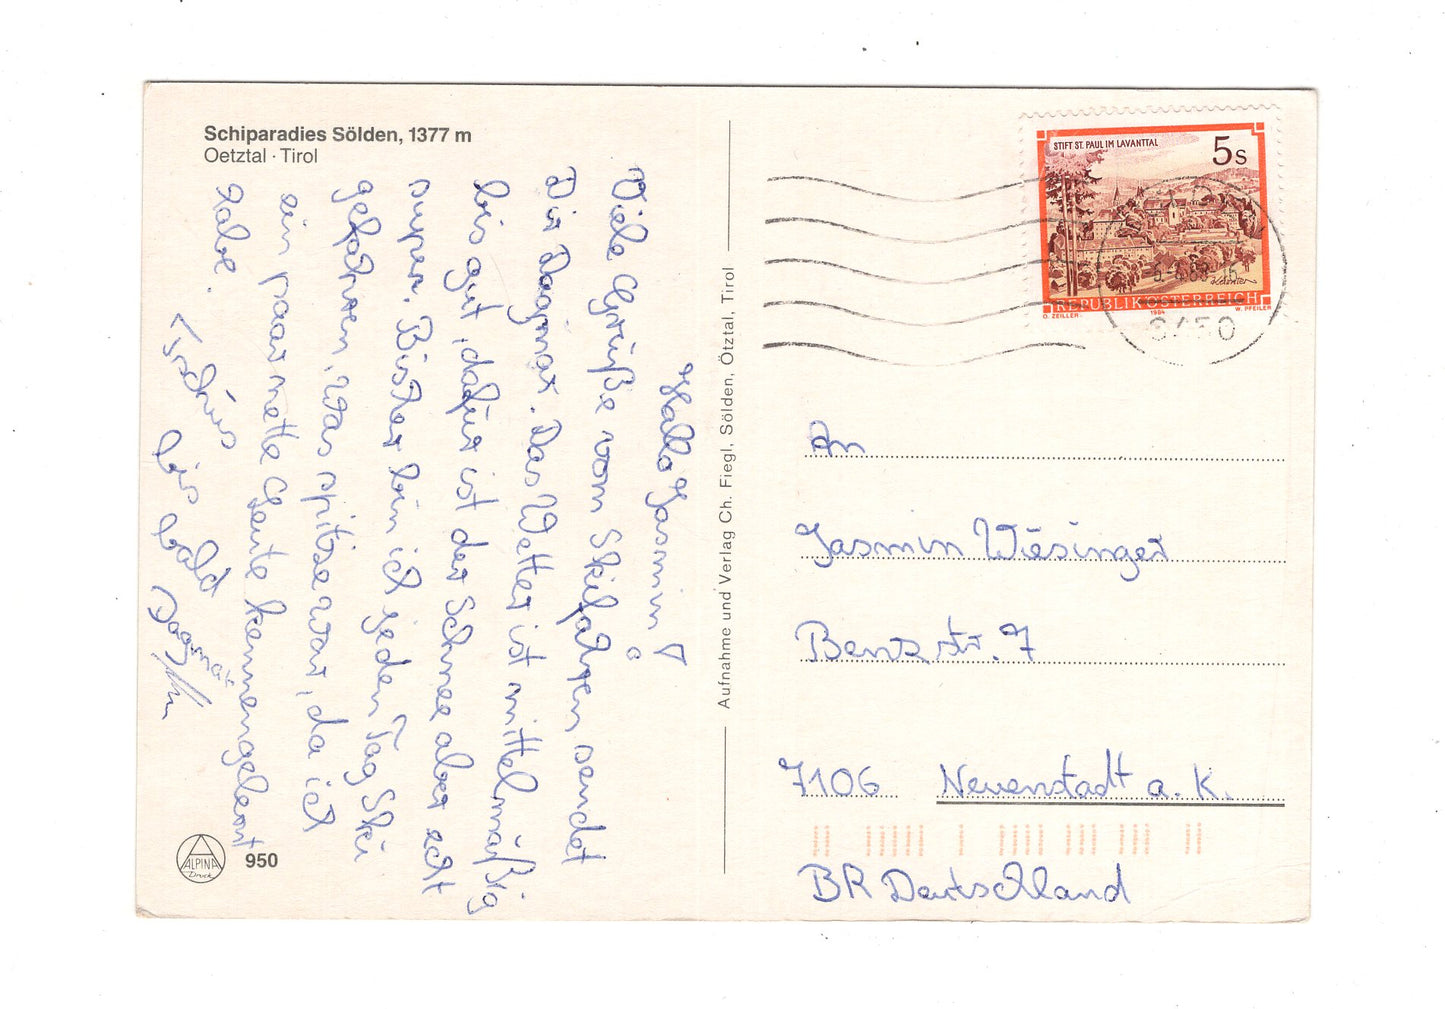 Schiparadies Sölden, 1377 m
Oetztal · Tirol
Hallo Jasmin!
Viele Grüße vom Skifahren sendet
Dir Dagmar. Das Wetter ist mittelmäßig
bis gut, dafür ist der Schnee aber echt
super. Bisher bin ich jeden Tag Ski
gefahren, was spitze war, da ich
ein paar nette Leute kennengelernt
habe.
Tschüs
bis bald
Dagmar
ALPINA
Druck
950
Aufnahme und Verlag Ch. Fiegl, Sölden, Ötztal, Tirol
STIFT ST. PAUL IM LAVANTTAL
5 S
REPUBLIK ÖSTERREICH
O. ZEILLER
1984
W. PFEILER
6450
An
Jasmin Wiesinger
Benzstr. 7
7106 Neuenstadt a. K.
BR Deutschland